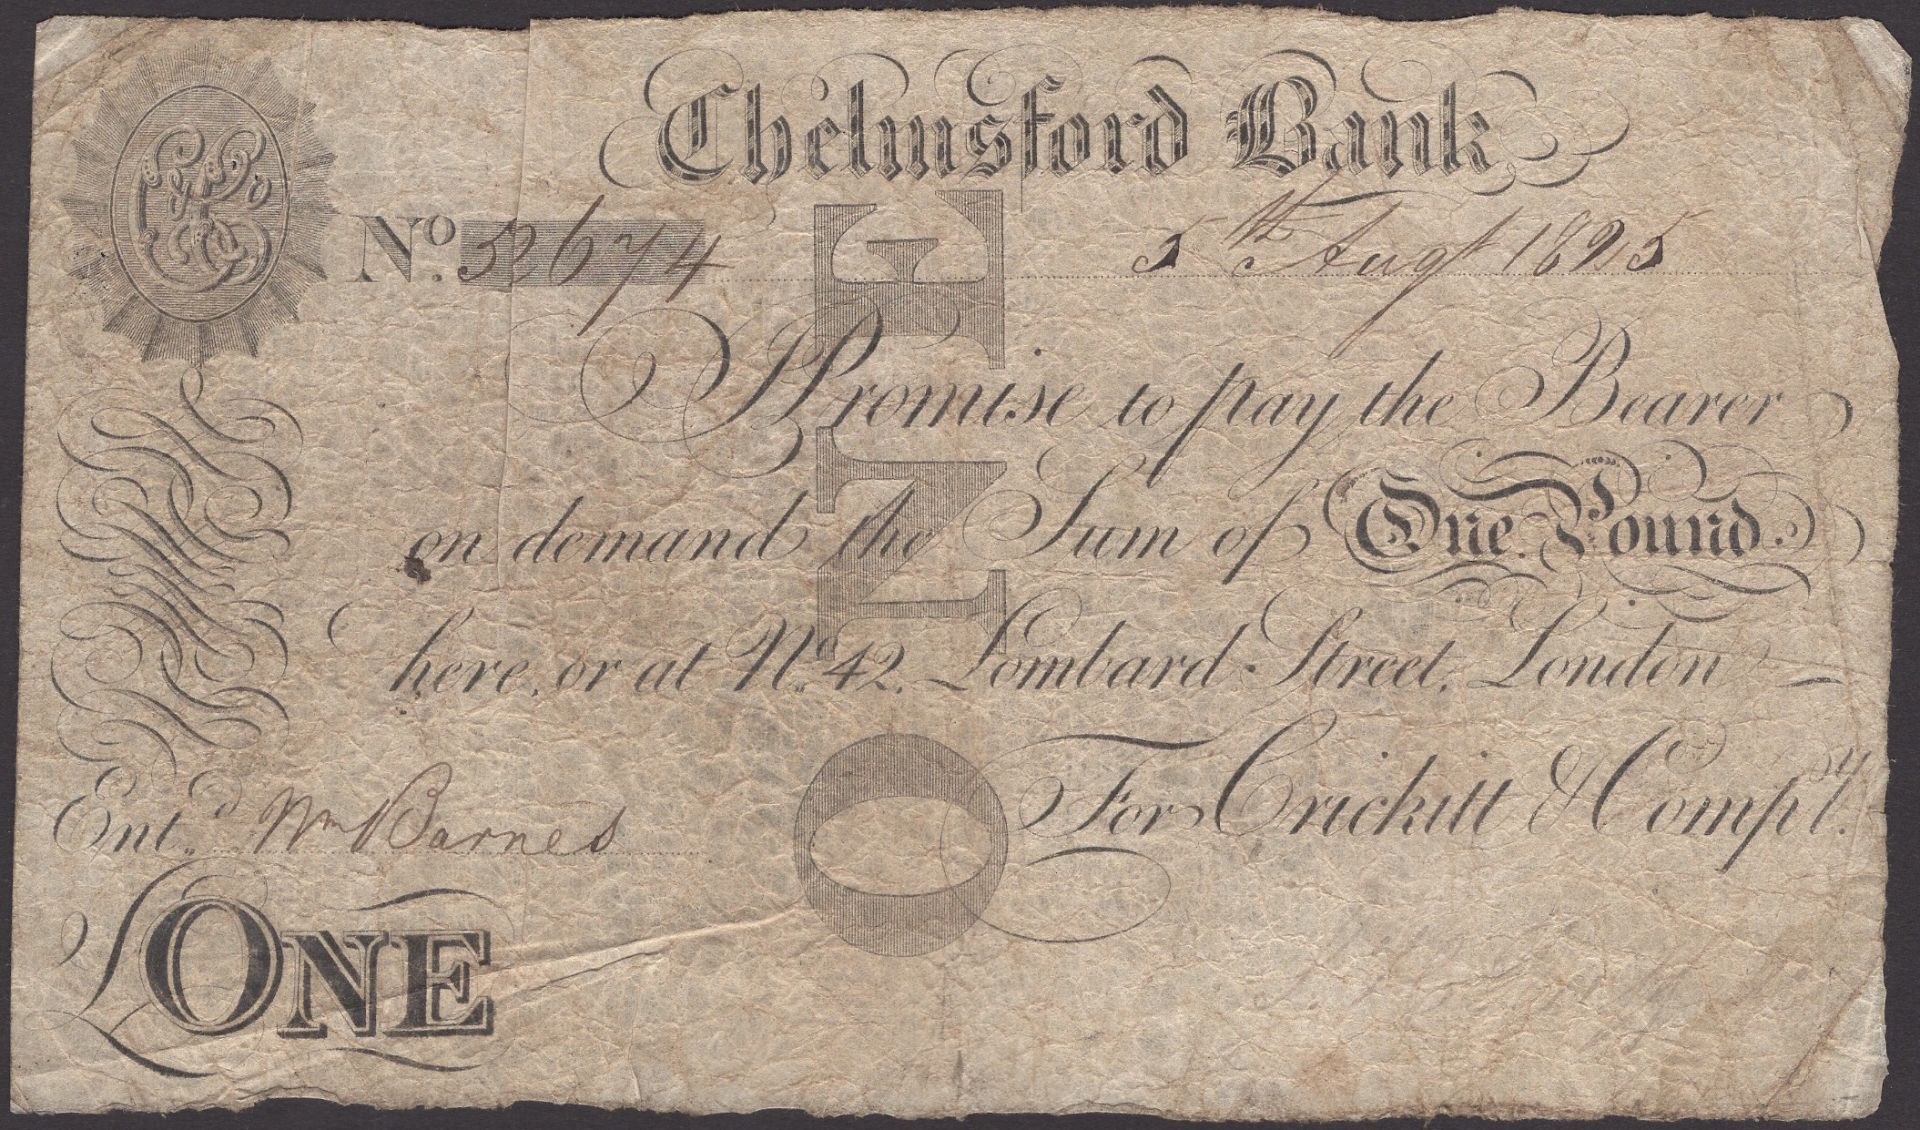 Chelmsford Bank
No. 52674 5th Augt 1825
I Promise to pay the Bearer
on demand the Sum of One Pound.
here, or at No. 42. Lombard Street, London
For Crickitt & Compy.
Entd. Wm Barnes
£ONE
ONE